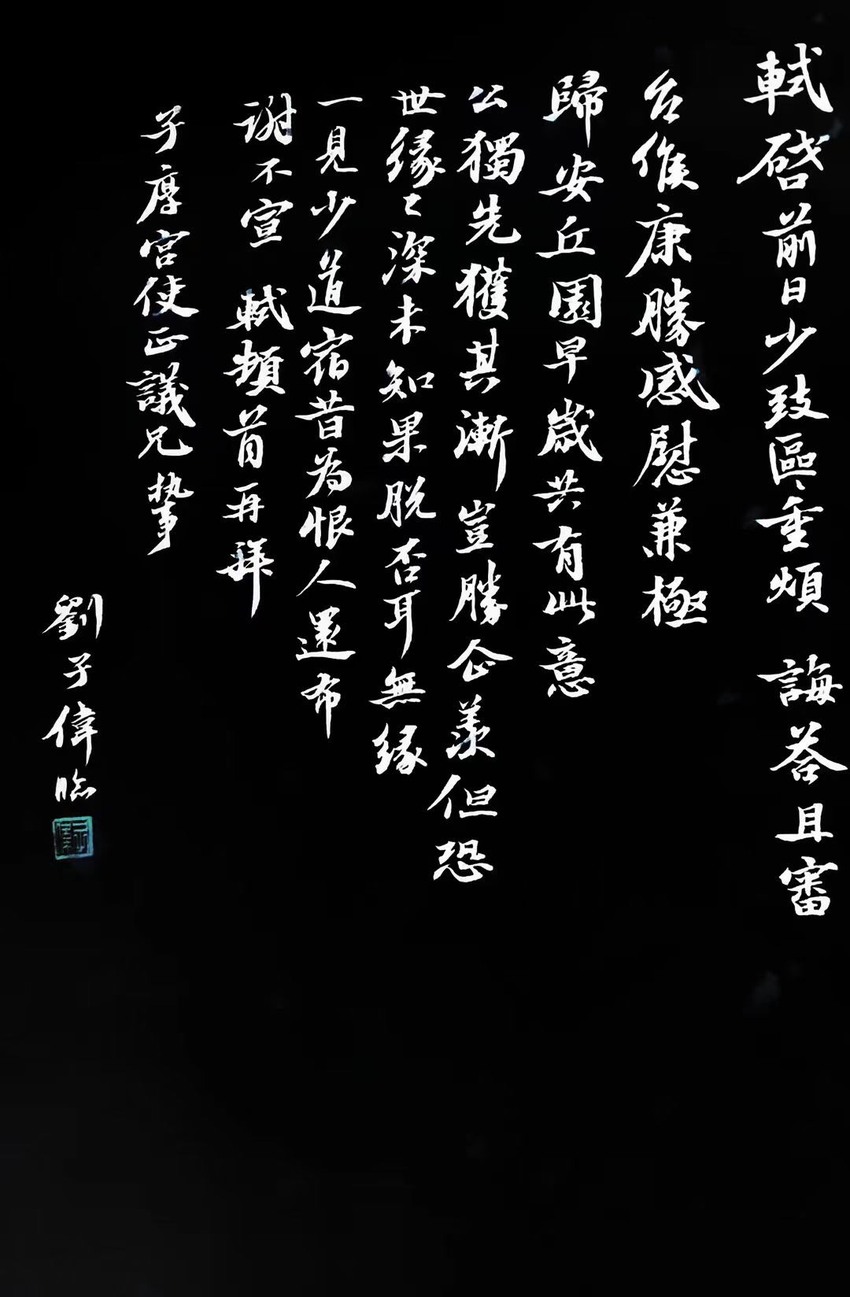 軾啓前日少致區〻重煩 誨荅且審
台候康勝感慰兼極
歸安丘園早歲共有此意
公獨先獲其漸豈勝企羨但恐
世緣〻深未知果脫否耳無緣
一見少道宿昔為恨人還布
謝不宣 軾頓首再拜
子厚宮使正議兄執事
劉子偉臨